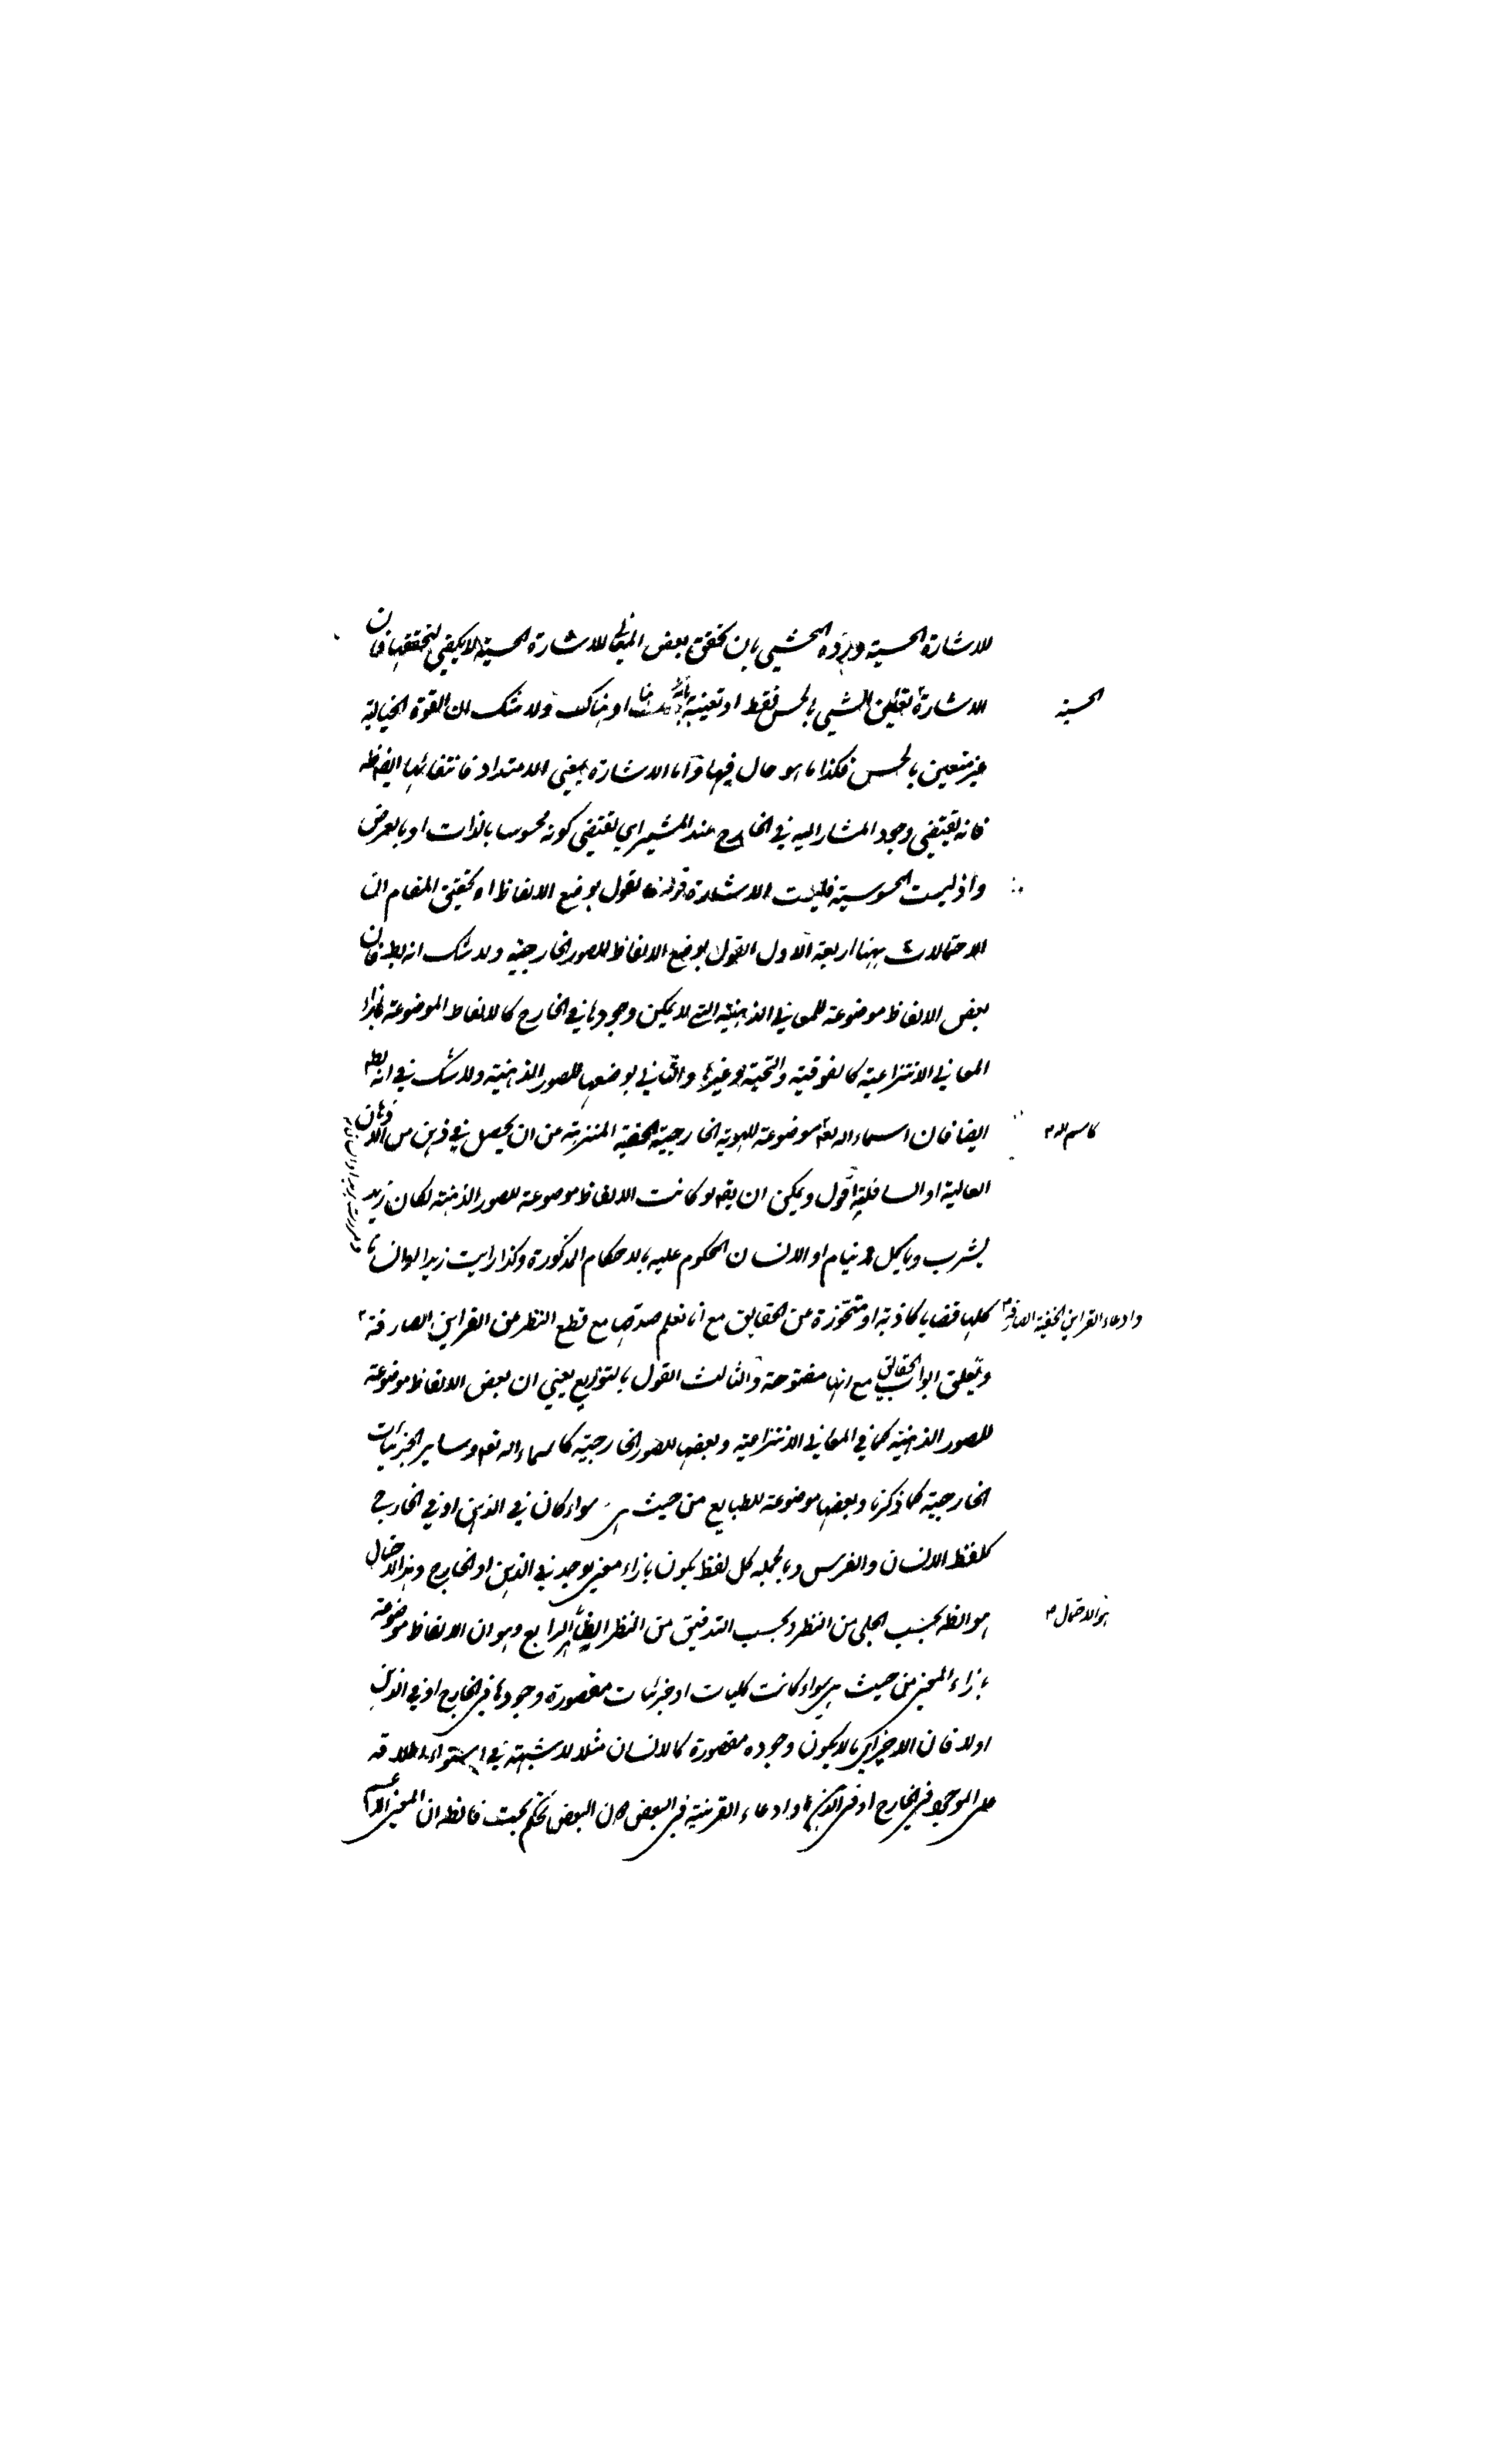 للاشارة الحسية ورده المحشي بان تحقق بعض المعاني للاشارة الحسية لا يكفي لتحققها فان
الحسية
الاشارة تعيين الشيء بالحس فقط او تعينه بانه هنا او هناك ولا شك ان القوة الخيالية
غير متعين بالحس فكذا ما هو حال فيها واما الاشارة بمعنى الامتداد فانتفائها ايضا ظ
فانه يقتضي وجود المشار اليه في الخارج عند المشير اي يقتضي كونه محسوسا بالذات او بالعرض
واذ ليست المحسوسية فليست الاشارة قوله نقول بوضع الالفاظ اه تحقيق المقام ان
الاحتمالات ههنا اربعة الاول القول بوضع الالفاظ للصور الخارجية ولا شك انه بط فان
بعض الالفاظ موضوعة للمعاني الذهنية التي لا يمكن وجودها في الخارج كالالفاظ الموضوعة بازاء
المعاني الانتزاعية كالفوقية والتحتية وغيرها والثاني بوضعها للصور الذهنية ولا شك في انه بط
كاسم الله
ايضا فان اسماء الله تعم موضوعة للهوية الخارجية الحقة المنزهة من ان يحصل في ذهن من الاذهان
العالية او السافلة اقول ويمكن ان يقم لو كانت الالفاظ موضوعة للصور الذهنية لكان زيد
يشرب وياكل وينام او الانسان المحكوم عليه بالاحكام المذكورة وكذا رايت زيدا او انسانا
وادعاء القراين الخفية الصارفة
كلها قضايا كاذبة او متجوزة عن الحقايق مع انا نعلم صدقها مع قطع النظر من القراين الصارفة
وتغلق ابواب الحقايق مع انها مفتوحة والثالث القول بالتوزيع يعني ان بعض الالفاظ موضوعة
للصور الذهنية كما في المعاني الانتزاعية وبعضها للصور الخارجية كاسماء الله تعم وساير الجزئيات
الخارجية كما ذكرنا وبعضها موضوعة للطبايع من حيث هي سواء كان في الذهن او في الخارج
كلفظ الانسان والفرس وبالجملة كل لفظ يكون بازاء معنى يوجد في الذهن او الخارج وهذا الاحتمال
هذا الاحتمال
هو الظ بحسب الجلي من النظر وبحسب التدقيق من النظر ايضا الرابع وهو ان الالفاظ موضوعة
بازاء المعنى من حيث هي سواء كانت كليات او جزئيات مقصورة وجودها في الخارج او في الذهن
اولا فان الاخير اي ما لا يكون وجوده مقصورة كالانسان مثلا لا شبهة في استواء اطلاقه
على الموجود في الخارج او في الذهن وادعاء القرينة في البعض دون البعض تحكم بحت فالظ ان المعنى الاعم